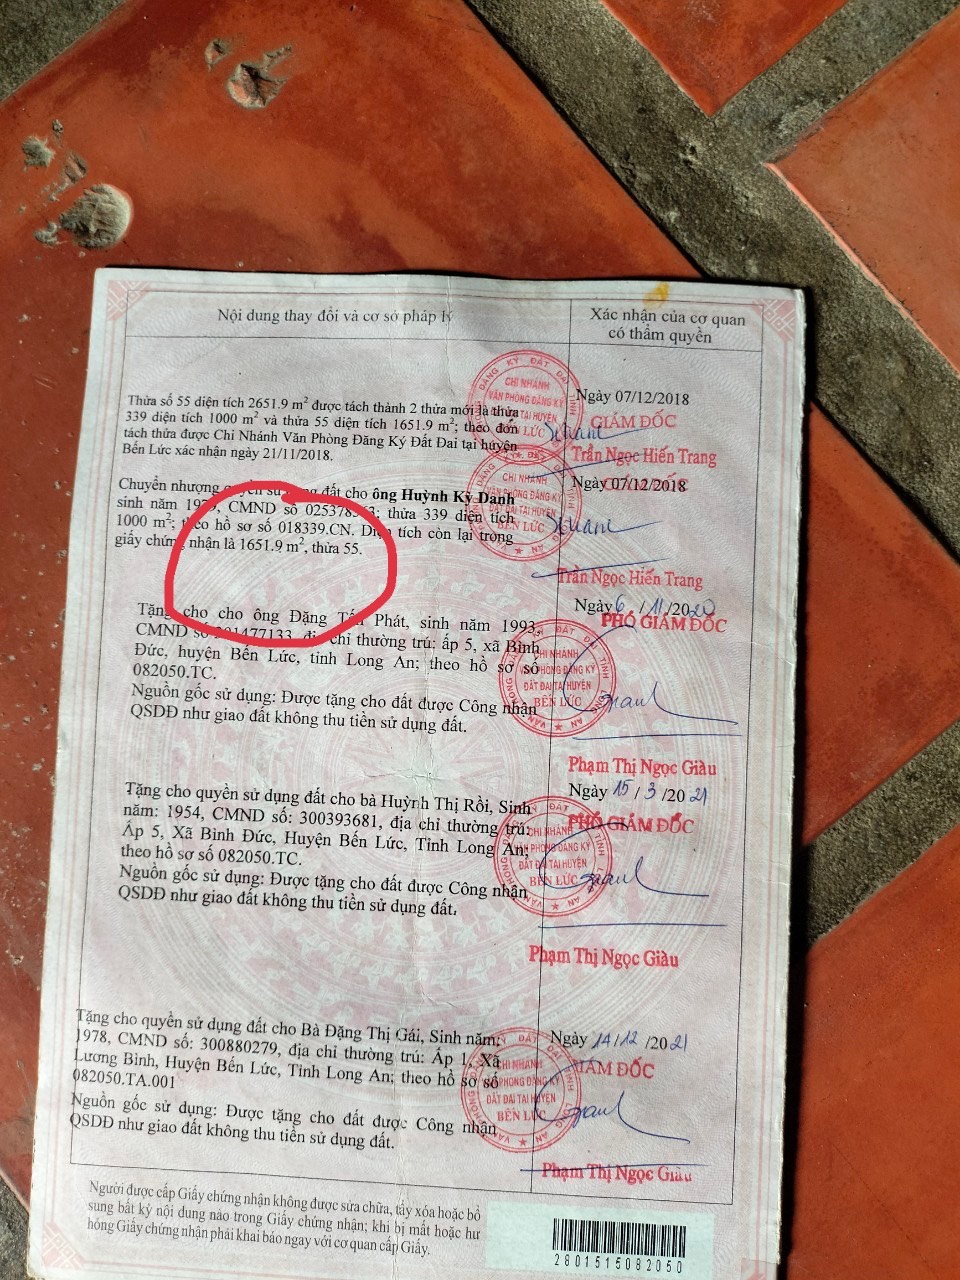 Nội dung thay đổi và cơ sở pháp lý
Xác nhận của cơ quan
có thẩm quyền
Thửa số 55 diện tích 2651.9 m² được tách thành 2 thửa mới là thửa
339 diện tích 1000 m² và thửa 55 diện tích 1651.9 m²; theo đơn
tách thửa được Chi Nhánh Văn Phòng Đăng Ký Đất Đai tại huyện
Bến Lức xác nhận ngày 21/11/2018.
Ngày 07/12/2018
GIÁM ĐỐC
Trần Ngọc Hiến Trang
Chuyển nhượng quyền sử dụng đất cho ông Huỳnh Kỳ Danh
sinh năm CMND số thửa 339 diện tích
1000 m²; theo hồ sơ số 018339.CN. Diện tích còn lại trong
giấy chứng nhận là 1651.9 m², thửa 55.
Ngày 07/12/2018
Trần Ngọc Hiến Trang
Tặng cho cho ông Đặng Tấn Phát, sinh năm 1993,
CMND số địa chỉ thường trú: ấp 5, xã Bình
Đức, huyện Bến Lức, tỉnh Long An; theo hồ sơ số
082050.TC.
Nguồn gốc sử dụng: Được tặng cho đất được Công nhận
QSDĐ như giao đất không thu tiền sử dụng đất.
Ngày 6 /11/2020
PHÓ GIÁM ĐỐC
Phạm Thị Ngọc Giàu
Tặng cho quyền sử dụng đất cho bà Huỳnh Thị Rồi, Sinh
năm: 1954, CMND số: 300393681, địa chỉ thường trú:
Ấp 5, Xã Bình Đức, Huyện Bến Lức, Tỉnh Long An;
theo hồ sơ số 082050.TC.
Nguồn gốc sử dụng: Được tặng cho đất được Công nhận
QSDĐ như giao đất không thu tiền sử dụng đất.
Ngày 15/3/2021
PHÓ GIÁM ĐỐC
Phạm Thị Ngọc Giàu
Tặng cho quyền sử dụng đất cho Bà Đặng Thị Gái, Sinh năm:
1978, CMND số: 300880279, địa chỉ thường trú: Ấp 1, Xã
Lương Bình, Huyện Bến Lức, Tỉnh Long An; theo hồ sơ số
082050.TA.001
Nguồn gốc sử dụng: Được tặng cho đất được Công nhận
QSDĐ như giao đất không thu tiền sử dụng đất.
Ngày 14/12/2021
GIÁM ĐỐC
Phạm Thị Ngọc Giàu
CHI NHÁNH
VĂN PHÒNG ĐĂNG KÝ
ĐẤT ĐAI TẠI HUYỆN
BẾN LỨC
Người được cấp Giấy chứng nhận không được sửa chữa, tẩy xóa hoặc bổ
sung bất kỳ nội dung nào trong Giấy chứng nhận; khi bị mất hoặc hư
hỏng Giấy chứng nhận phải khai báo ngay với cơ quan cấp Giấy.
2801515082050